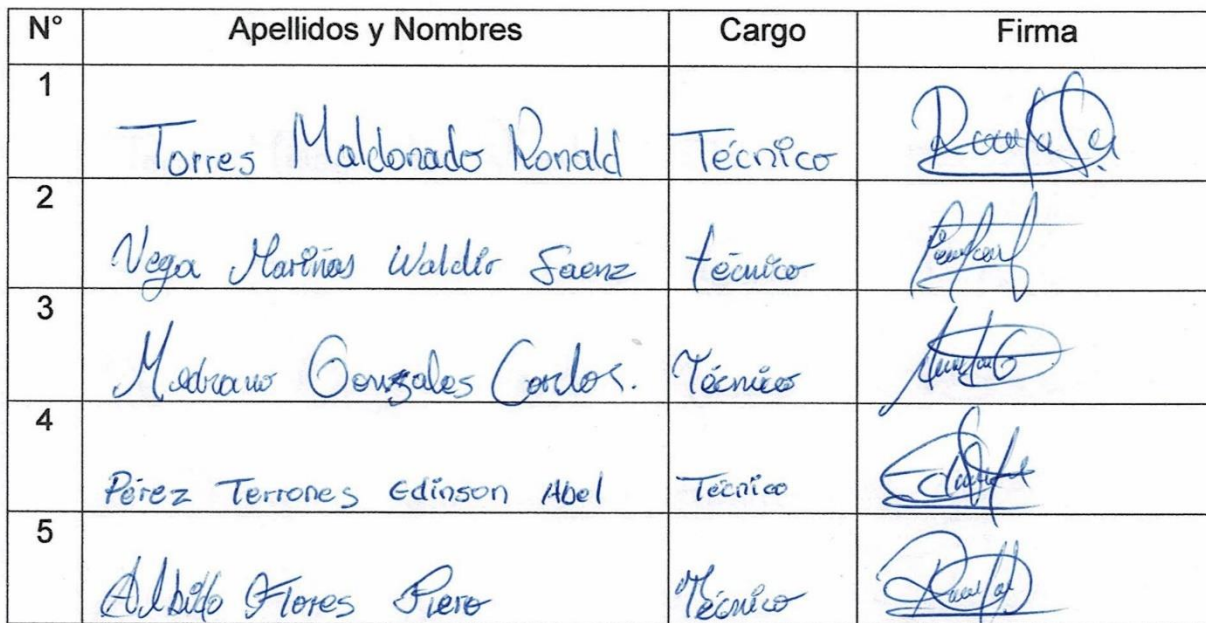 N° Apellidos y Nombres Cargo Firma
1 Torres Maldonado Ronald Técnico
2 Vega Mariños Waldir Saenz técnico
3 Medrano Gonzales Carlos. Técnico
4 Pérez Terrones Edinson Abel Técnico
5 Flores Piero Técnico